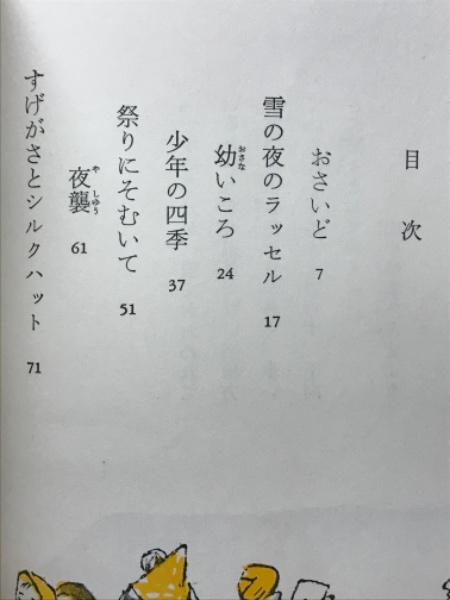 目次
おさいど 7
雪の夜のラッセル 17
幼いころ 24
少年の四季 37
祭りにそむいて 51
夜襲 61
すげがさとシルクハット 71